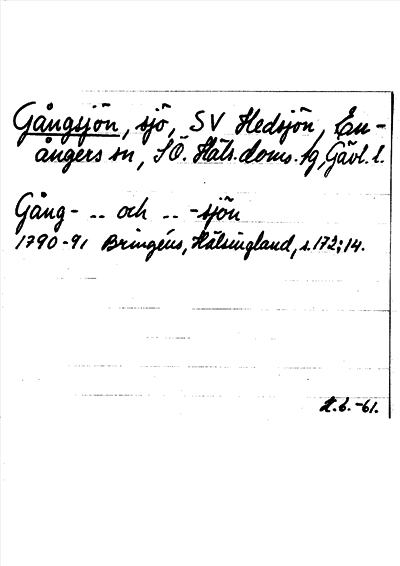 Gångsjön, sjö, SV Hedsjön, En-
ångers sn, SÖ. Häls. doms. tg, Gävl. l.
Gång- .. och .. -sjön
1790-91 Bringéus, Hälsingland, s. 172; 14.
-61.